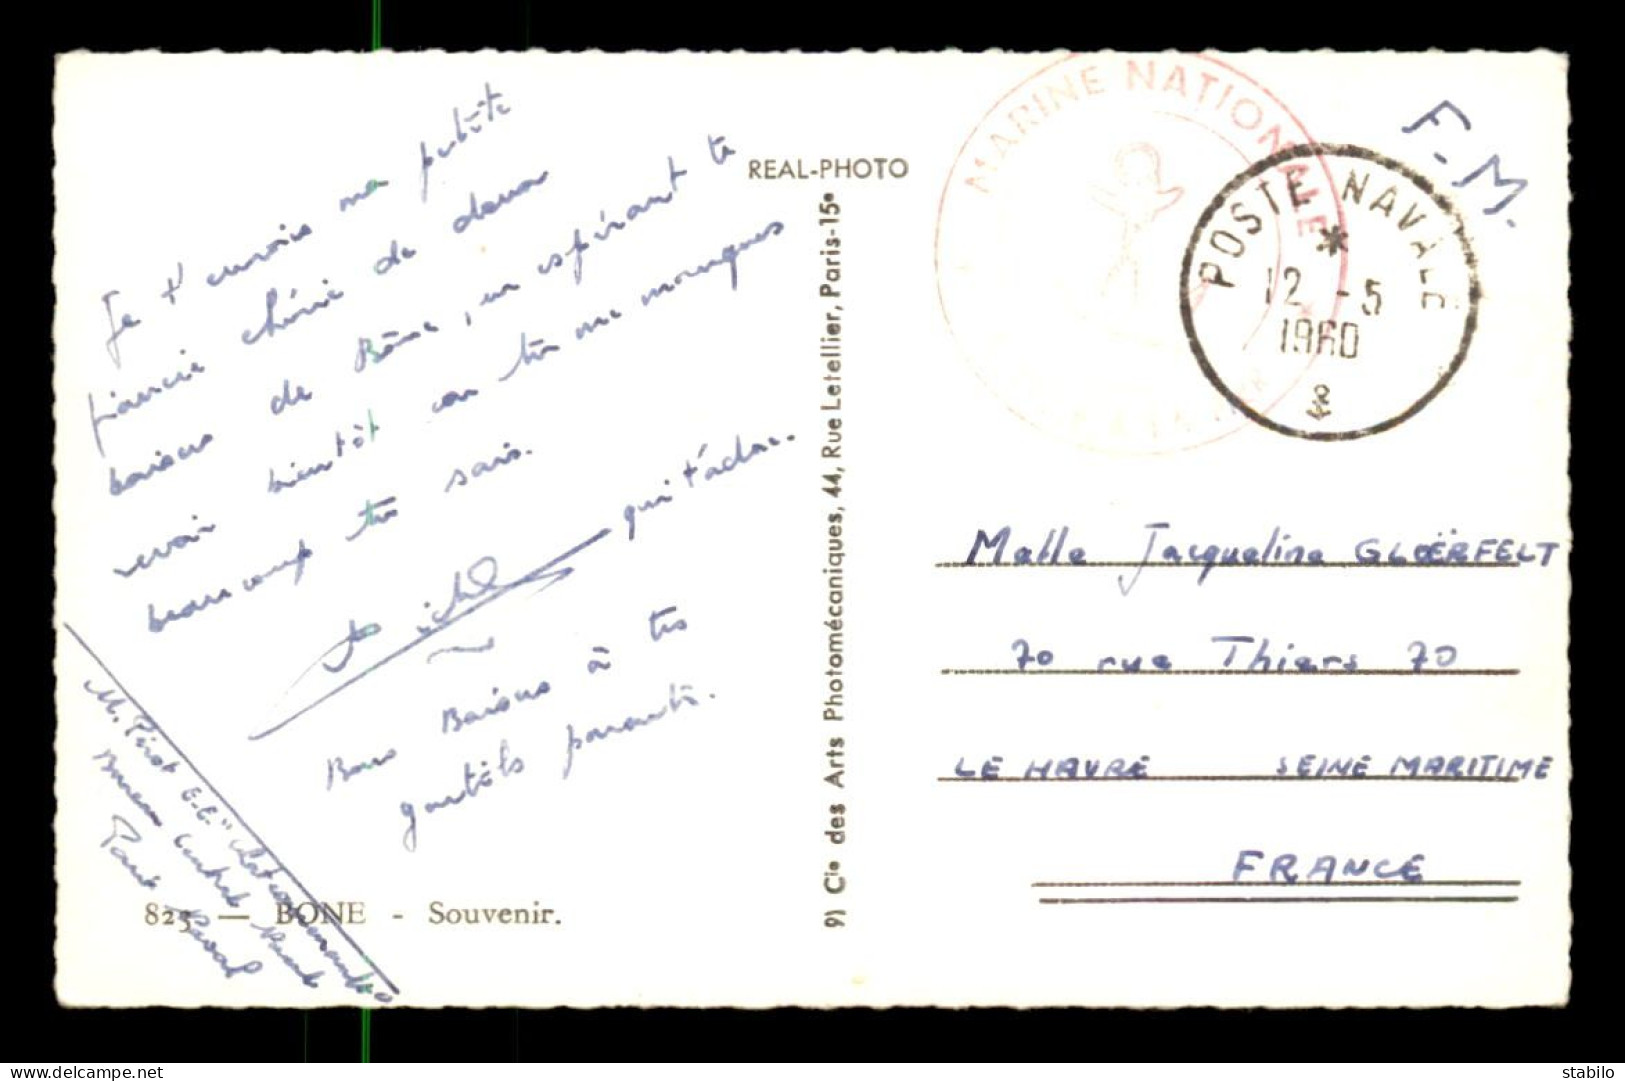 Je t'envoie ma petite
fiancée chérie de doux
baisers de Bône, en espérant te
revoir bientôt car tu me manques
beaucoup tu sais.
qui t'adore.
Bons Baisers à tes
parents.
M. Pirot E.E.
Bureau Central Naval
Paris Naval
823 — BONE - Souvenir.
REAL-PHOTO
9) Cie des Arts Photomécaniques, 44, Rue Letellier, Paris-15e
MARINE NATIONALE
F.M.
POSTE NAVALE
*
12 -5
1960
Melle Jacqueline GLOËRFELT
70 rue Thiers 70
LE HAVRE SEINE MARITIME
FRANCE
the best website for collectors
delcampe.net
stabilo